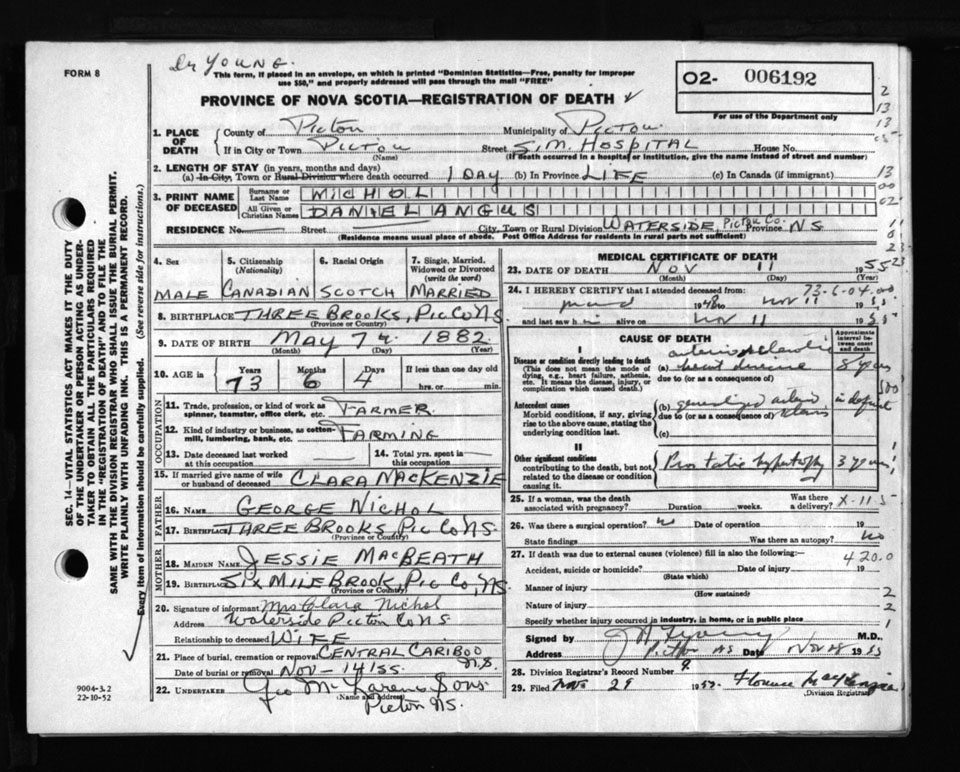 FORM 8
Dr YOUNG.
This form, if placed in an envelope, on which is printed "Dominion Statistics—Free, penalty for improper
use $50," and properly addressed will pass through the mail "FREE"
O2- 006192
For use of the Department only
PROVINCE OF NOVA SCOTIA—REGISTRATION OF DEATH
1. PLACE OF DEATH
County of Pictou Municipality of PICTOU
If in City or Town PICTOU Street S.M. HOSPITAL House No.
(Name) (If death occurred in a hospital or institution, give the name instead of street and number)
2. LENGTH OF STAY (in years, months and days)
(a) In City, Town or Rural Division where death occurred 1 DAY (b) In Province LIFE (c) In Canada (if immigrant)
3. PRINT NAME OF DECEASED
Surname or Last Name NICHOL
All Given or Christian Names DANIEL ANGUS
RESIDENCE No. Street City, Town or Rural Division WATERSIDE, PICTOU CO. Province N S
(Residence means usual place of abode. Post Office Address for residents in rural parts not sufficient)
4. Sex
MALE
5. Citizenship (Nationality)
CANADIAN
6. Racial Origin
SCOTCH
7. Single, Married, Widowed or Divorced (write the word)
MARRIED
8. BIRTHPLACE THREE BROOKS, PIC CO NS
(Province or Country)
9. DATE OF BIRTH MAY 7 1882
(Month) (Day) (Year)
10. AGE in Years Months Days If less than one day
73 6 4 hrs. or min.
OCCUPATION
11. Trade, profession, or kind of work as spinner, teamster, office clerk, etc. FARMER
12. Kind of industry or business, as cotton-mill, lumbering, bank, etc. FARMING
13. Date deceased last worked at this occupation
14. Total yrs. spent in this occupation
15. If married give name of wife or husband of deceased CLARA MACKENZIE
FATHER
16. Name GEORGE NICHOL
17. Birthplace THREE BROOKS, PIC CO NS
(Province or Country)
MOTHER
18. MAIDEN NAME JESSIE MACBEATH
19. Birthplace SIX MILE BROOK, PIC CO, NS
(Province or Country)
20. Signature of informant Mrs Clara Nichol
Address Waterside Pictou Co NS
Relationship to deceased WIFE
21. Place of burial, cremation or removal CENTRAL CARIBOO N.S.
Date of burial or removal NOV - 14/55.
22. UNDERTAKER Geo McLaren & Sons.
(Name and address)
Pictou NS.
MEDICAL CERTIFICATE OF DEATH
23. DATE OF DEATH NOV 11 1955
(Month) (Day)
73-6-04.00
24. I HEREBY CERTIFY that I attended deceased from:
1948 to Nov 11 1955
and last saw him alive on Nov 11 1955
CAUSE OF DEATH
Approximate interval between onset and death
I
Disease or condition directly leading to death
(This does not mean the mode of dying, e.g., heart failure, asthenia, etc. It means the disease, injury, or complication which caused death.)
(a) arteriosclerotic heart disease 8 years
due to (or as a consequence of)
Antecedent causes
Morbid conditions, if any, giving rise to the above cause, stating the underlying condition last.
(b) generalized
due to (or as a consequence of)
(c)
II
Other significant conditions
contributing to the death, but not related to the disease or condition causing it.
Prostatic hypertrophy 3 years
25. If a woman, was the death associated with pregnancy? Duration weeks. Was there a delivery? X-11.5
26. Was there a surgical operation? Date of operation 19
State findings Was there an autopsy? no
27. If death was due to external causes (violence) fill in also the following:—
420.0
Accident, suicide or homicide? Date of injury 19
(State which)
Manner of injury
(How sustained)
Nature of injury
Specify whether injury occurred in industry, in home, or in public place
Signed by M.D.
Address Pictou NS Date Nov 1955
28. Division Registrar's Record Number
29. Filed Nov 29 19 Florence MacKenzie
Division Registrar
SEC. 14—VITAL STATISTICS ACT MAKES IT THE DUTY
OF THE UNDERTAKER OR PERSON ACTING AS UNDER-
TAKER TO OBTAIN ALL THE PARTICULARS REQUIRED
IN THE "REGISTRATION OF DEATH" AND TO FILE THE
SAME WITH THE DIVISION REGISTRAR WHO SHALL ISSUE THE BURIAL PERMIT.
WRITE PLAINLY WITH UNFADING INK. THIS IS A PERMANENT RECORD.
Every item of information should be carefully supplied. (See reverse side for instructions.)
9004-3.2
22-10-52